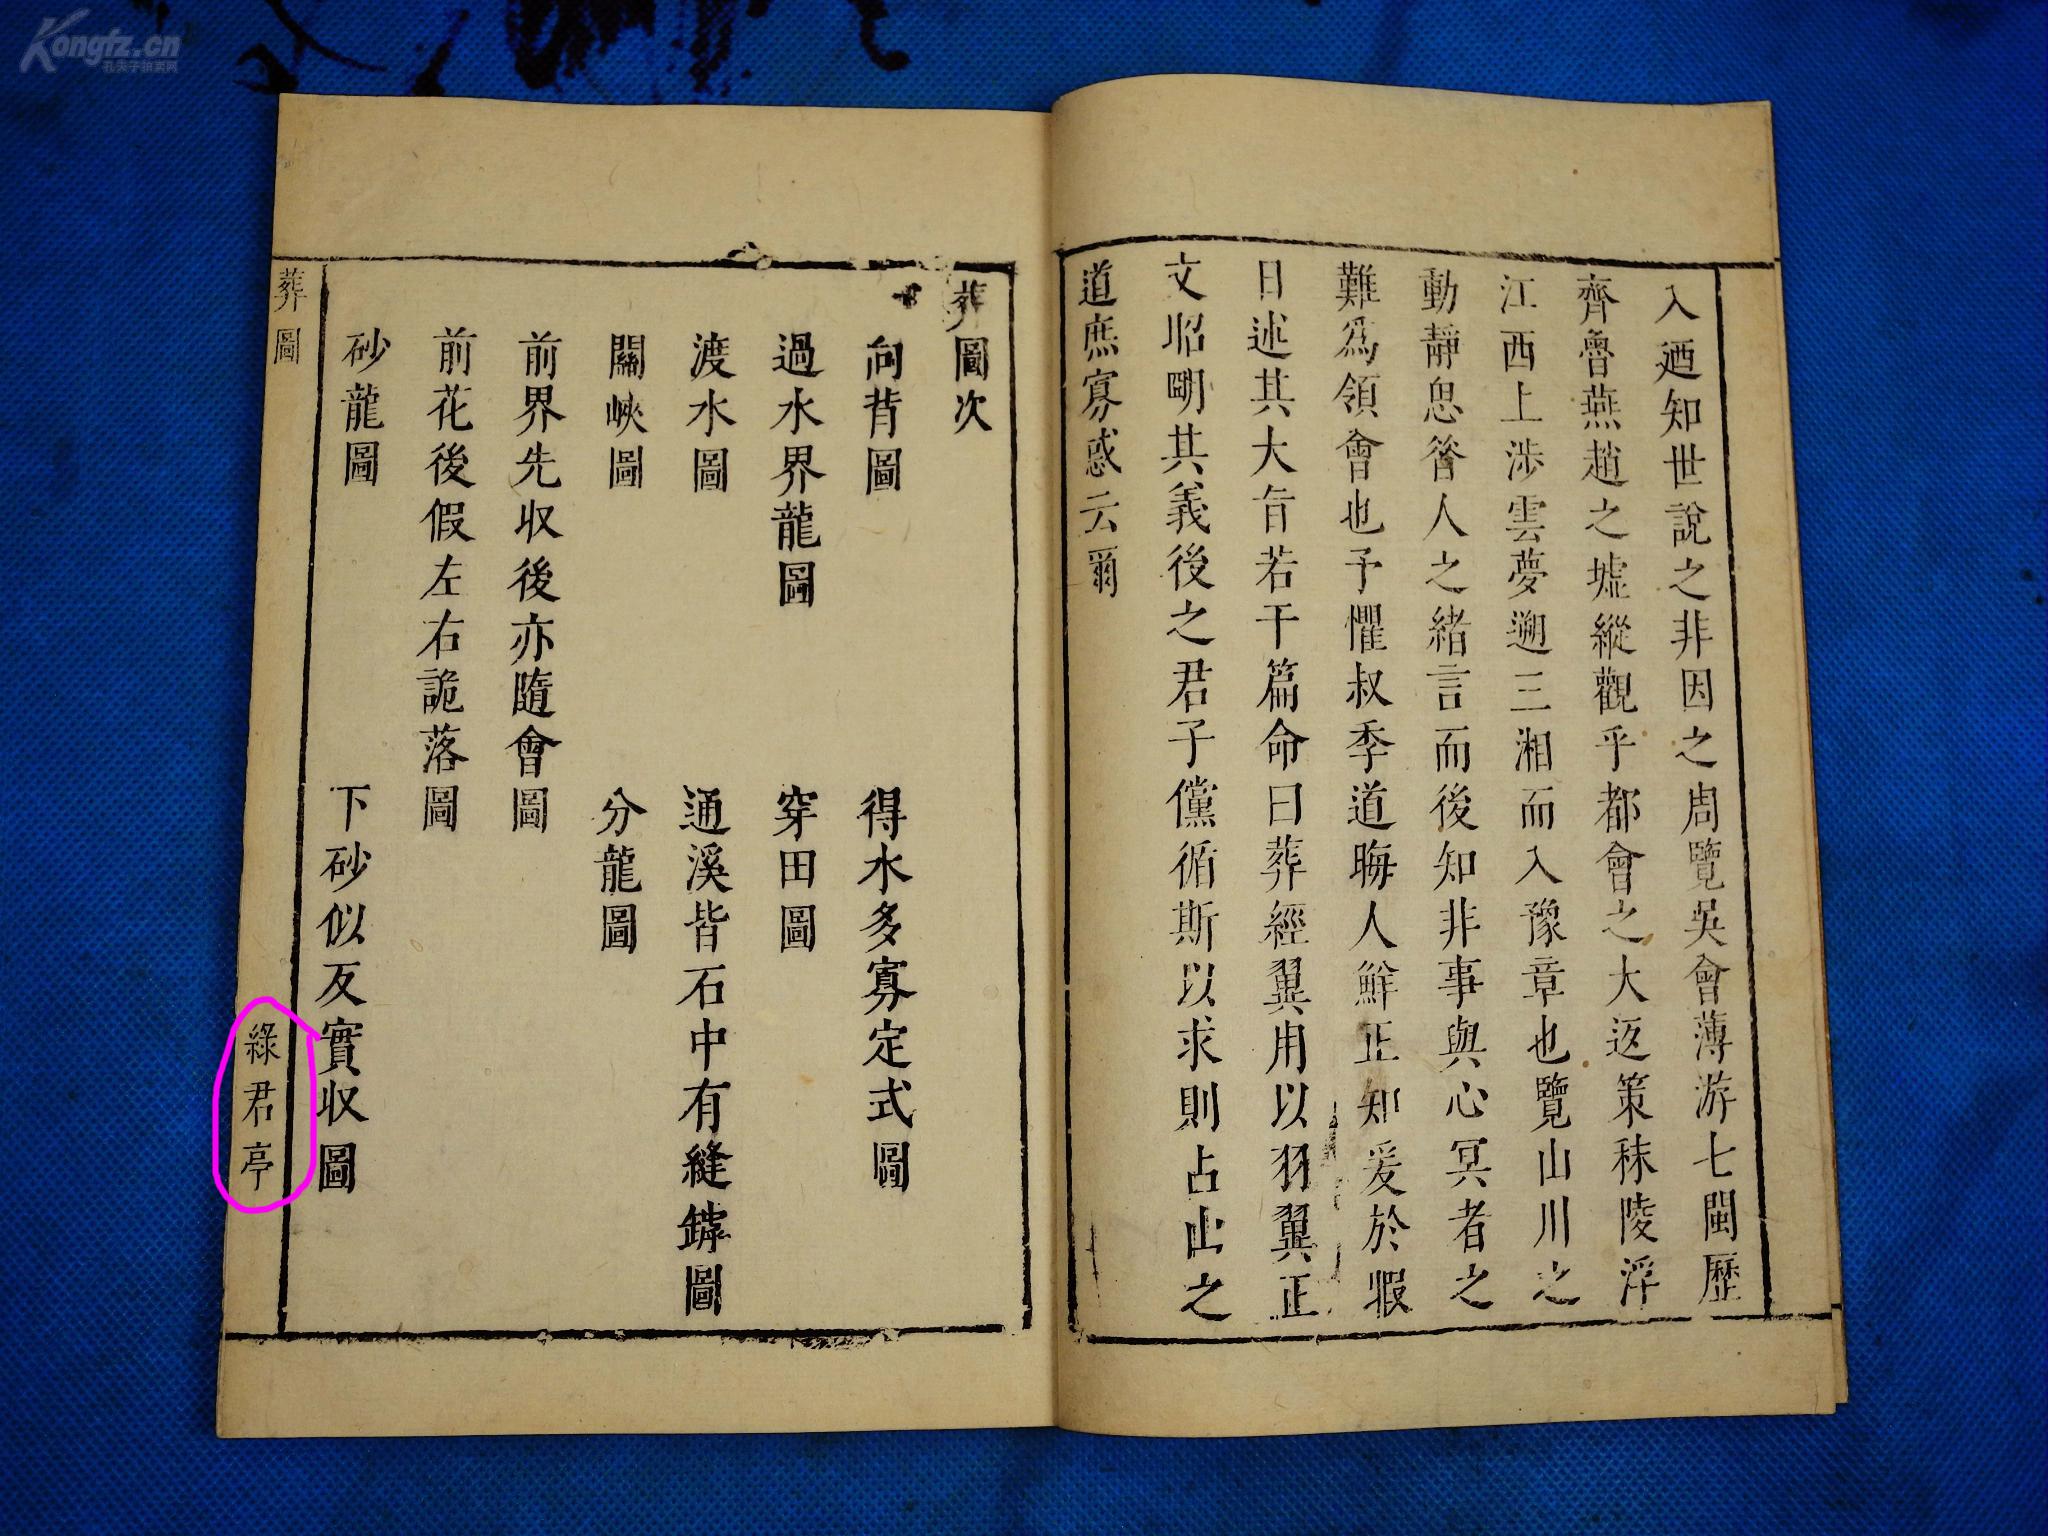 Kongfz.cn
孔夫子拍卖网
入迺知世說之非因之周覽吳會薄游七閩歷
齊魯燕趙之墟縱觀乎都會之大返策秣陵浮
江西上涉雲夢遡三湘而入豫章也覽山川之
動靜思答人之緒言而後知非事與心冥者之
難爲領會也予懼叔季道晦人鮮正知爰於暇
日述其大旨若干篇命曰葬經翼用以羽翼正
文昭明其義後之君子儻循斯以求則占山之
道庶寡惑云爾
葬圖次
向背圖 得水多寡定式圖
過水界龍圖 穿田圖
渡水圖 通溪皆石中有縫罅圖
關峽圖 分龍圖
前界先収後亦隨會圖
前花後假左右詭落圖
砂龍圖 下砂似反實収圖
葬圖 綠君亭